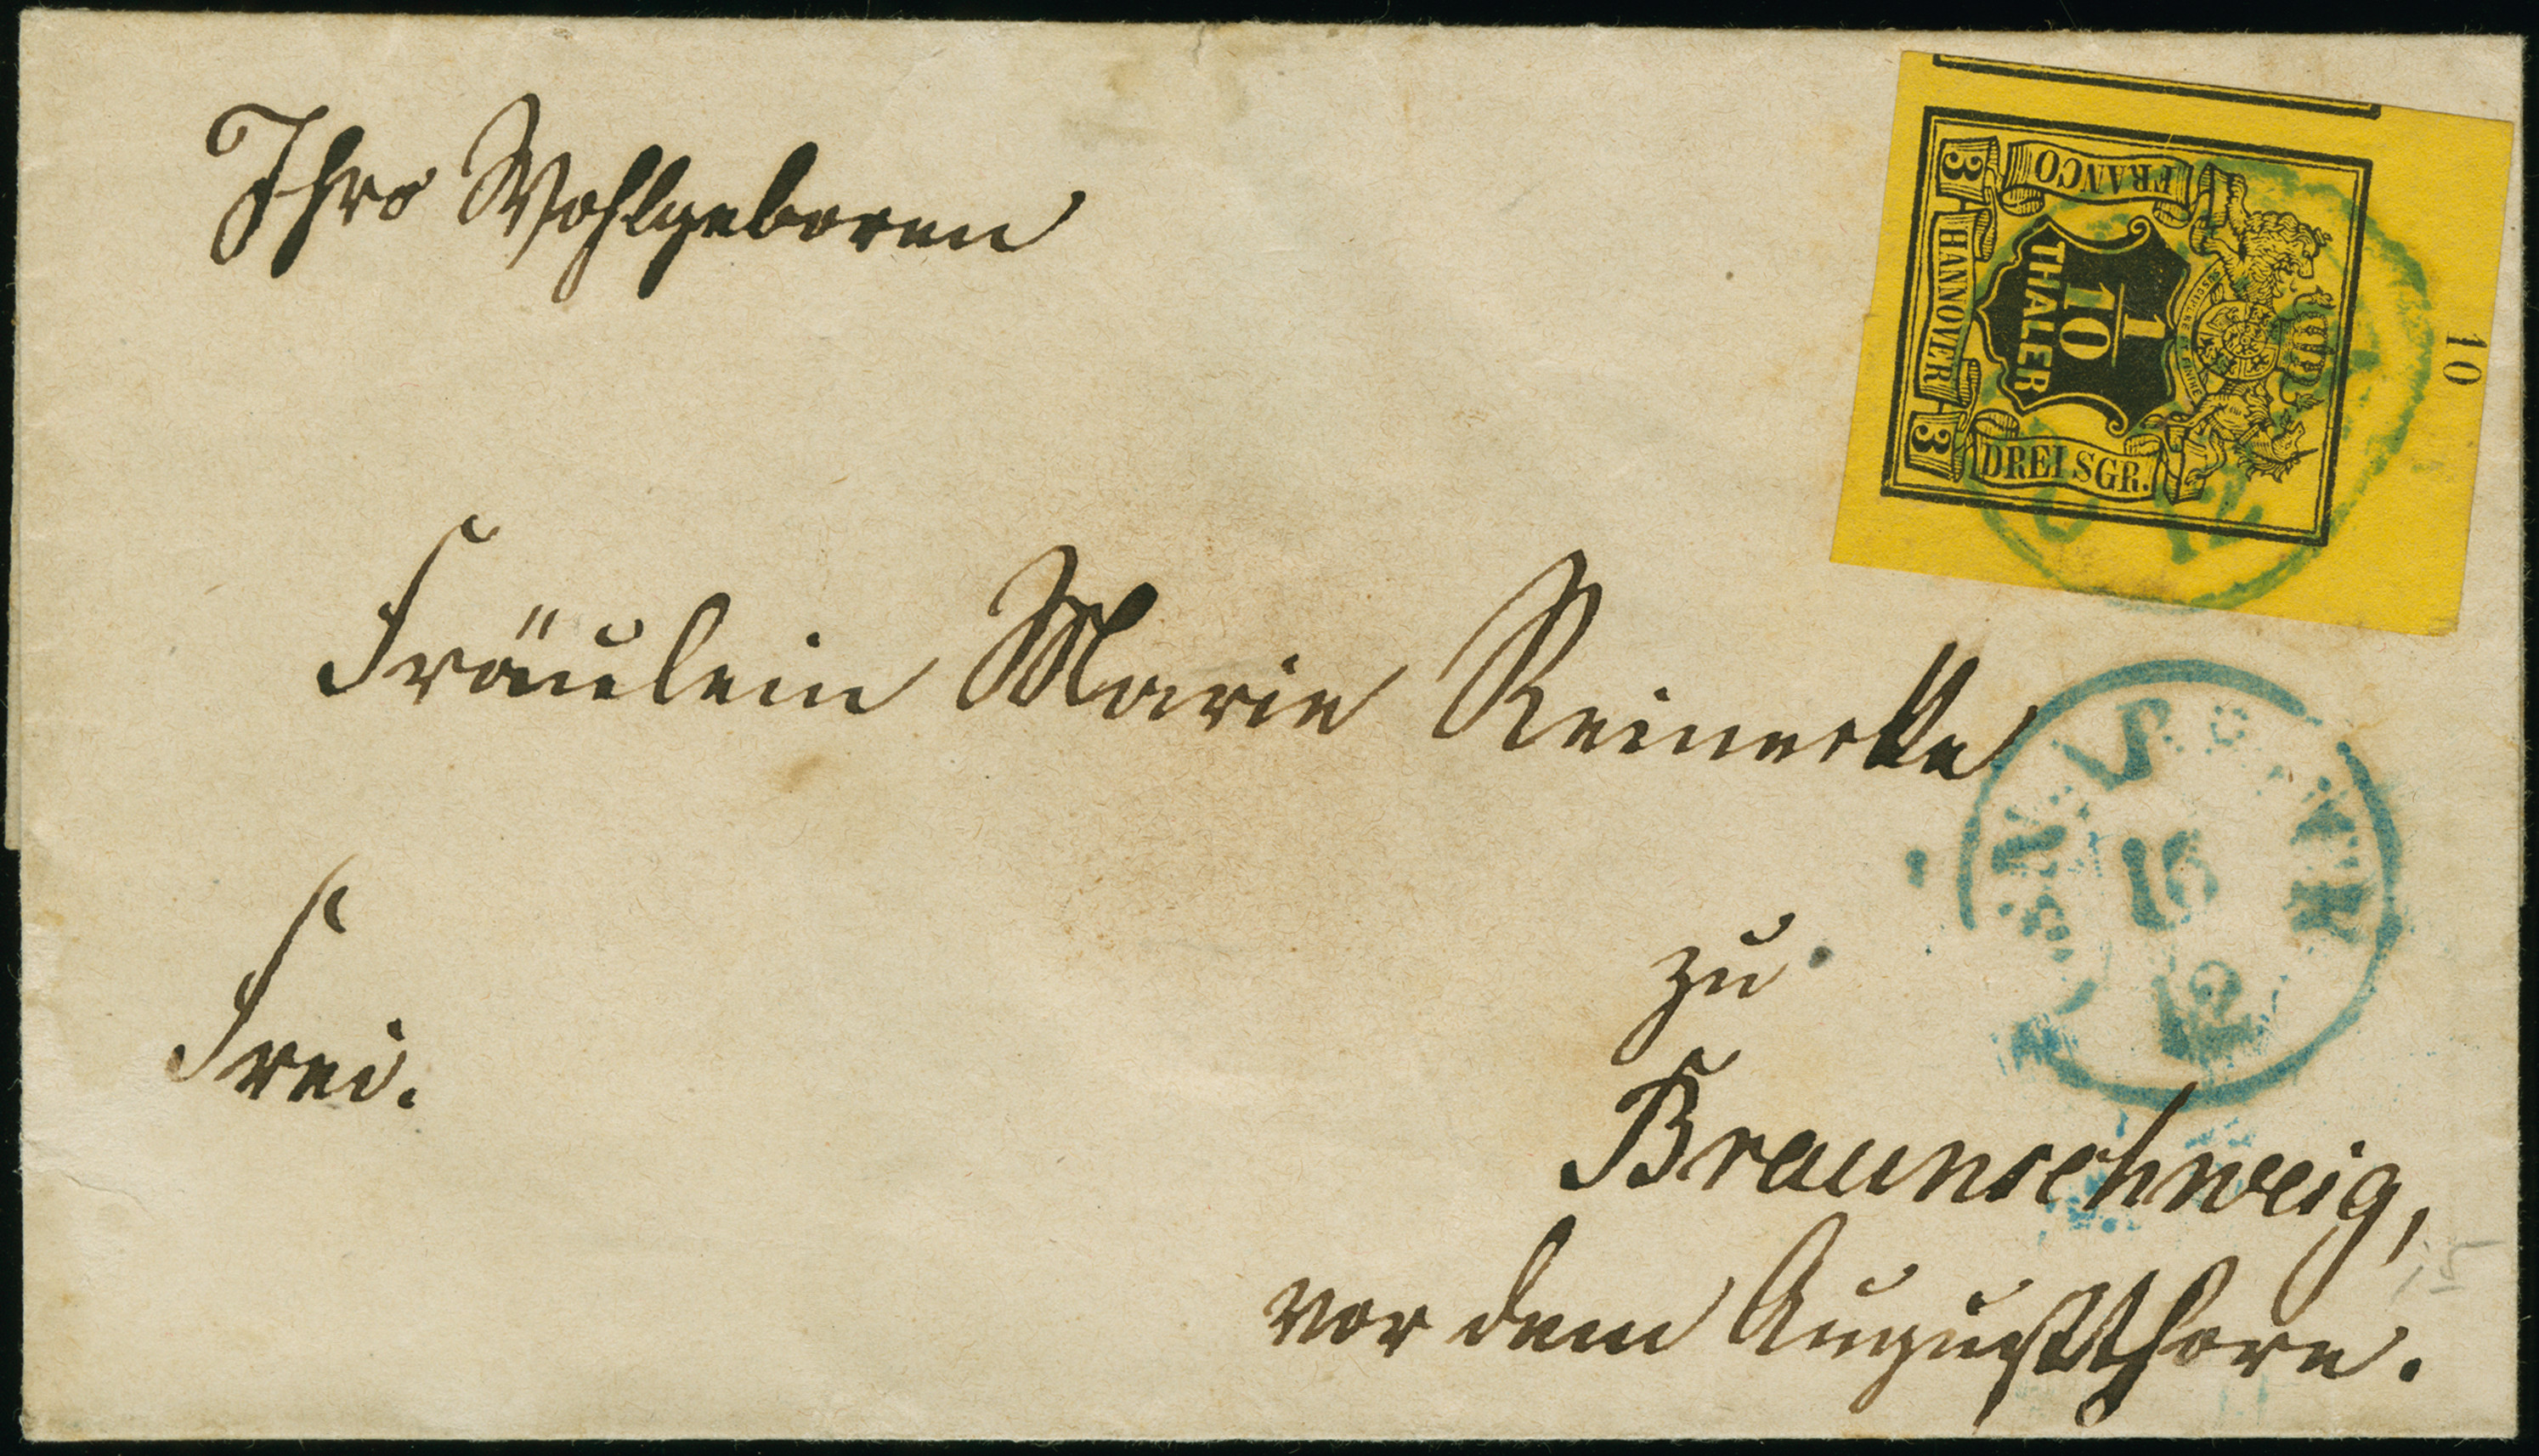 Ihro Wohlgeboren
FRANCO
3 HANNOVER 3
1/10
THALER
DREI SGR.
10
Fräulein Marie Reinecke
16
12
zu
Frei.
Braunschweig,
vor dem Augustthore.